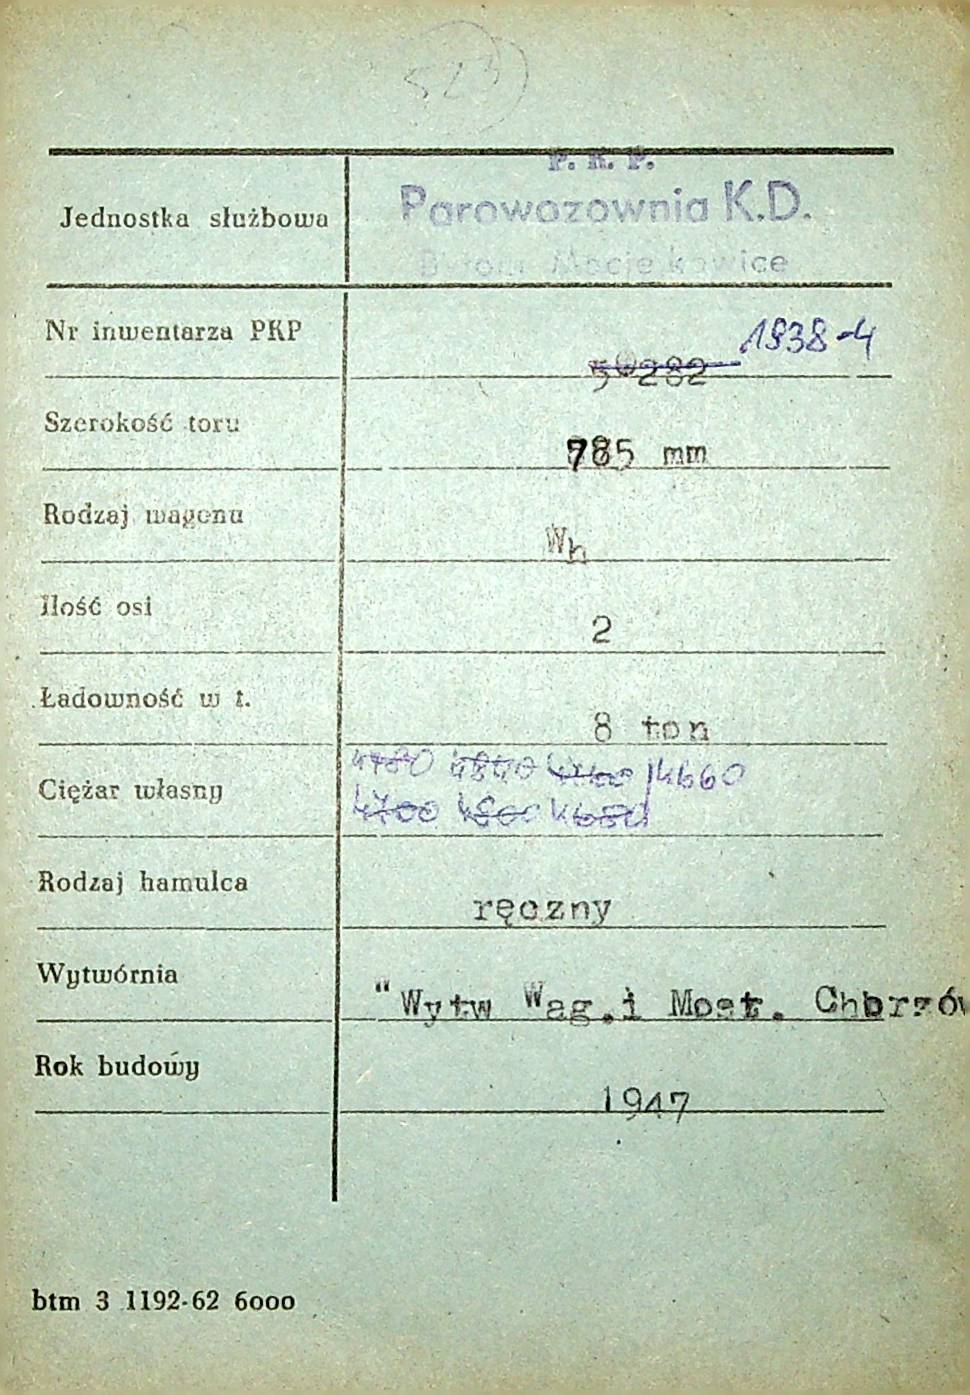 523
P. K. P.
Jednostka służbowa Parowozownia K.D.
Bytom Maciejkowice
Nr inwentarza PKP 50282 1838-4
Szerokość toru 785 mm
Rodzaj wagonu Wh
Ilość osi 2
Ładowność w t. 8 ton
4780 4840 4660
Ciężar własny
4700 4800 4680
Rodzaj hamulca ręczny
Wytwórnia "Wytw Wag.i Most. Chorzów
Rok budowy 1947
btm 3 1192-62 6000